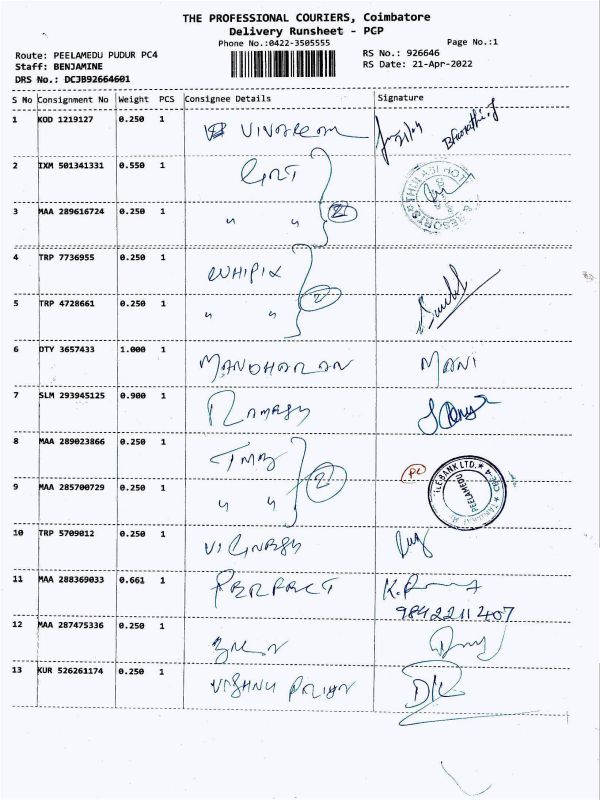 THE PROFESSIONAL COURIERS, Coimbatore
Delivery Runsheet - PCP
Phone No.:0422-3505555
Page No.:1
Route: PEELAMEDU PUDUR PC4
RS No.: 926646
Staff: BENJAMINE
RS Date: 21-Apr-2022
DRS No.: DCJB92664601
S No Consignment No Weight PCS Consignee Details Signature
1 KOD 1219127 0.250 1
2 IXM 501341331 0.550 1 GRT
3 MAA 289616724 0.250 1 " " 2
4 TRP 7736955 0.250 1 WHIPIX
5 TRP 4728661 0.250 1 " " 2
6 DTY 3657433 1.000 1 MANOHARAN MANI
7 SLM 293945125 0.900 1 RAMESH
8 MAA 289023866 0.250 1 TMB
9 MAA 285700729 0.250 1 " " 2
PEELAMEDU
10 TRP 5709012 0.250 1 VIGNESH
11 MAA 288369033 0.661 1 PERFECT
9842211407
12 MAA 287475336 0.250 1
13 KUR 526261174 0.250 1 VISHNU PRIYA